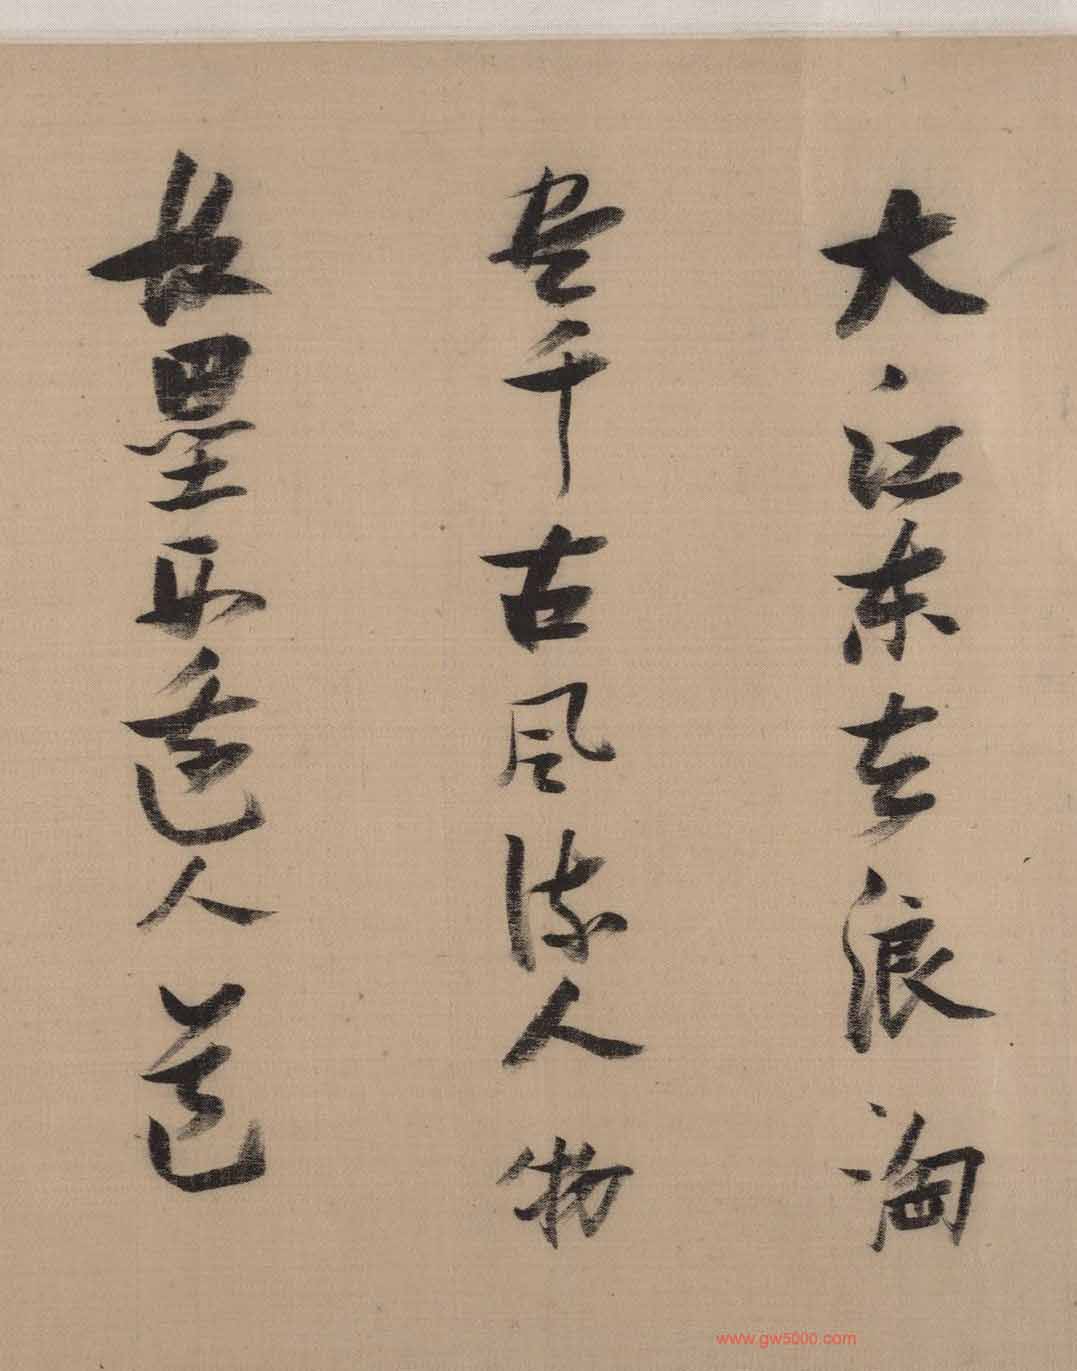 大江东去浪淘
尽千古风流人物
故垒西边人道
www.gw5000.com